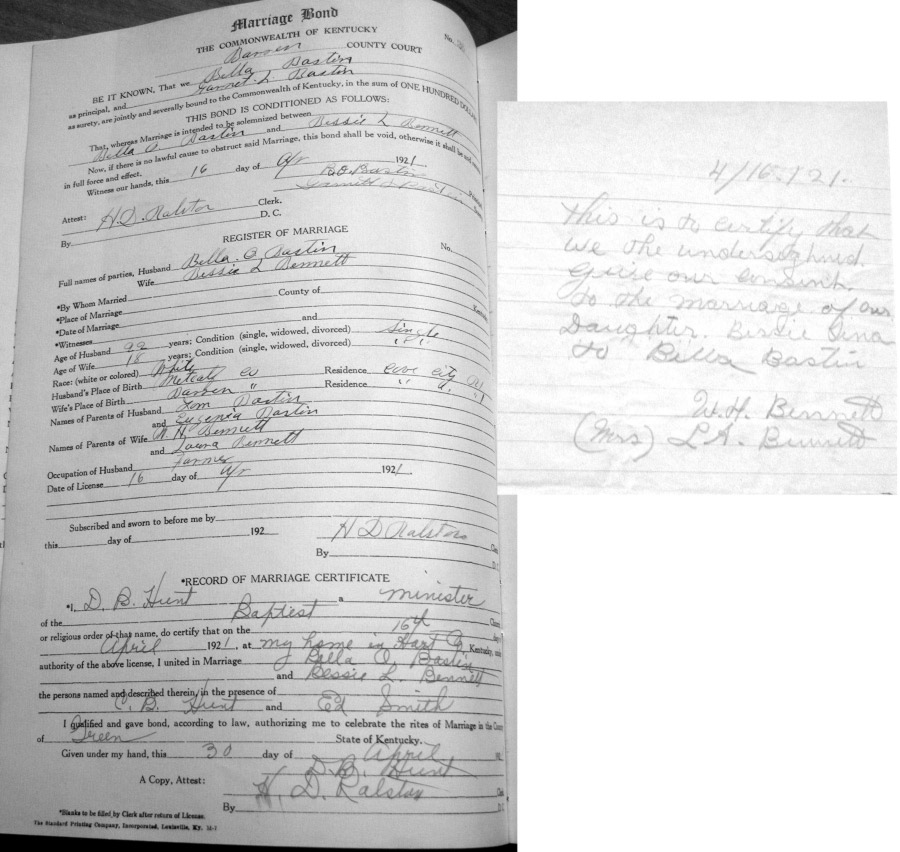 Marriage Bond
No.
THE COMMONWEALTH OF KENTUCKY
Barren COUNTY COURT
BE IT KNOWN, That we Billa Bastin
as principal, and Garnet L Bastin
as surety, are jointly and severally bound to the Commonwealth of Kentucky, in the sum of ONE HUNDRED DOLLARS
THIS BOND IS CONDITIONED AS FOLLOWS:
That, whereas Marriage is intended to be solemnized between
Billa O Bastin and Bessie L Bennett
Now, if there is no lawful cause to obstruct said Marriage, this bond shall be void, otherwise it shall be
in full force and effect.
Witness our hands, this 16 day of Ap 1921
B.O. Bastin
Attest: H.D. Ralston Clerk.
By D. C.
REGISTER OF MARRIAGE
No.
Full names of parties, Husband Billa. O. Bastin
Wife Bessie L Bennett
*By Whom Married
*Place of Marriage County of
*Date of Marriage
*Witnesses and
Age of Husband 22 years; Condition (single, widowed, divorced) Single
Age of Wife 18 years; Condition (single, widowed, divorced) " "
Race: (white or colored) White
Husband's Place of Birth Metcalf Co Residence Cave City Ky
Wife's Place of Birth Barren " Residence " " "
Names of Parents of Husband Tom Bastin
and Eugenia Bastin
Names of Parents of Wife W. H. Bennett
and Laura Bennett
Occupation of Husband Farmer
Date of License 16 day of Ap 1921
Subscribed and sworn to before me by
this day of 192
H D Ralston
By
*RECORD OF MARRIAGE CERTIFICATE
*I, D. B. Hunt a minister
of the Baptist
or religious order of that name, do certify that on the 16th
April 1921, at my home in Hart Co, Kentucky,
authority of the above license, I united in Marriage Billa O. Bastin
and Bessie L. Bennett
the persons named and described therein, in the presence of
C. B. Hunt and Ed Smith
I qualified and gave bond, according to law, authorizing me to celebrate the rites of Marriage in the
of Green State of Kentucky.
Given under my hand, this 30 day of April
D.B. Hunt
A Copy, Attest: H. D. Ralston
By
*Blanks to be filled by Clerk after return of License.
The Standard Printing Company, Incorporated, Louisville, Ky.
4/16.121.
This is to certify that
we the undersighnid
give our consint.
to the marriage of our
Daughter. Bessie Lina
to Billa Bastin
W. H. Bennett
(Mrs) L.A. Bennett